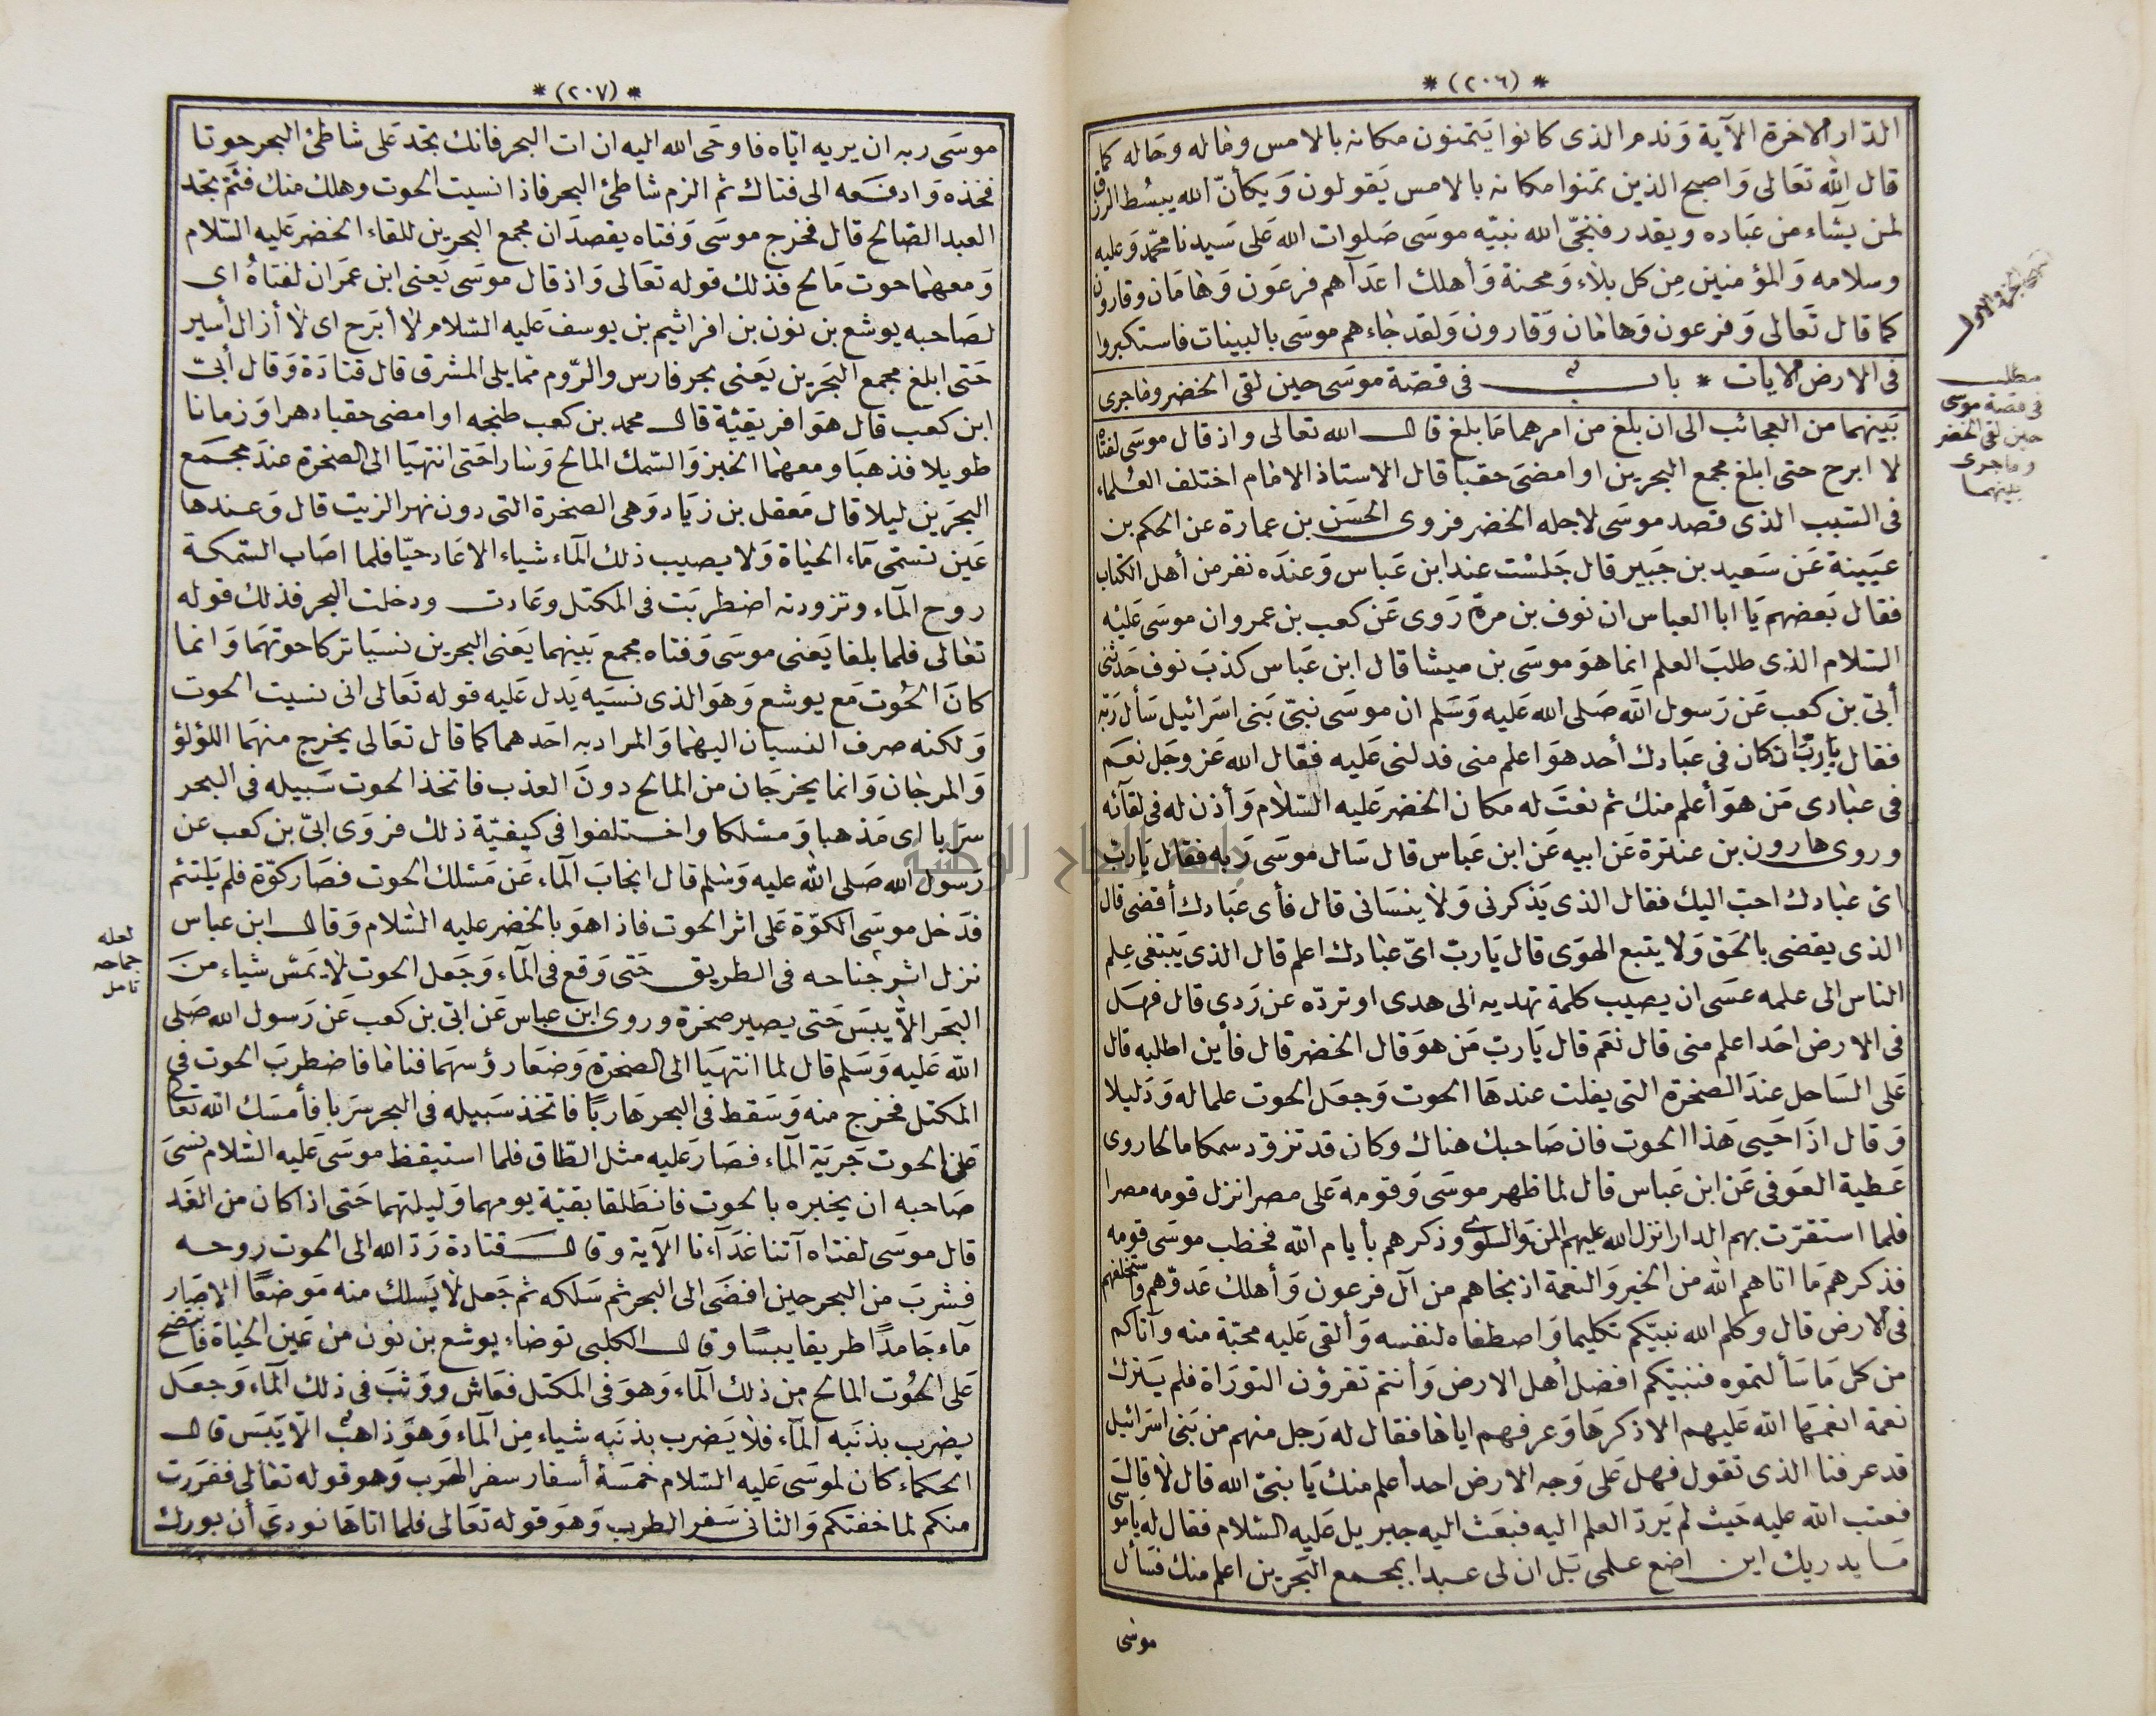 * (٢٠٦) *
الدّار الاخرة الآية وَندم الذى كانوا يَتمنون مكانه بالامس وماله وحَاله كما
قال الله تعَالى وَاصبح الذين تمنوا مكانه بالامس يَقولون وَيكأنّ الله يبسُط الرزق
لمن يشَاء من عبَاده ويقدر فنجّى الله نبيّه موسَى صَلوات الله عَلى سَيدنا محمّد وَعليه
وسلامه وَالمؤمنين مِن كل بلاء وَمحنة وَأهلك اعدَآهم فرعَون وَهَامَان وقارون
كما قال تعَالى وَفرعون وَهامان وَقارون وَلقد جاءهم موسَى بالبينات فاستكبروا
فى الارض الايات * باب فى قصّة موسَى حين لقى الخضر وماجرى
بَينهما من العجائب الى ان بلغ من امرهما مَا بلغ قال الله تعالى واذ قال موسَى لفتاه
لا ابرح حتى ابلغ مجمع البحرين او امضىَ حقبا قال الاستاذ الامام اختلف العُلماء
فى السّبب الذى قصد موسَى لاجله الخضر فروى الحَسَن بن عمارة عن الحكم بن
عيَينة عَن سَعيد بن جَبير قال جَلسْت عند ابن عَباس وَعندَه نفر من أهل الكتاب
فقال بَعضهم يَا ابا العباس ان نوف بن مرة رَوى عَن كعب بن عمرو ان موسَى عَليْه
السّلام الذى طلبَ العلم انما هوَ موسَى بن ميشا قال ابن عَباس كذبَ نوف حَدثنى
أبىّ بن كعب عَن رَسول الله صَلى الله عَليه وَسَلم ان موسَى نبىّ بَنى اسرَائيل سَأل رَبّه
فقال يَاربّ ان كان فى عبَادك أحد هوَ اعلم منى فدلنى عَليه فقال الله عَز وجَل نعَم
فى عبادى مَن هوَ أعلم منك ثم نعتَ له مكان الخضر عَليه السّلام وَأذن له فى لقآئه
وروى هَارون بن عنترة عَن ابيه عَن ابن عَباس قال سَال موسَى رَبه فقال يَاربّ
اىّ عبادك احبّ اليك فقال الذى يَذكرنى وَلا ينسَانى قال فأى عبَادك أقضى قال
الذى يقضى بالحَق وَلا يتبع الهوَى قال يَاربّ اىّ عبادك اعلم قال الذى يَبتغى عِلم
الناس الى علمه عسَى ان يصيب كلمة تهديه الى هدى او تردّه عن رَدى قال فهَل
فى الارض احَد اعلم منى قال نعَم قال يَاربّ مَن هوَ قال الخضر قال فأين اطلبه قال
عَلى السَاحل عندَ الصّخرة التى يفلت عندهَا الحوت وَجعَل الحوت علما له وَدَليلا
وَقال اذَا حَيىَ هَذا الحوت فان صَاحبك هناك وكان قد تزوّد سمكا مالحا روى
عَطية العَوفى عَن ابن عَباس قال لما ظهر موسَى وَقومه عَلى مصر انزل قومه مصرا
فلما استقرّت بهم الدار انزل الله عليهم المنّ وَالسلوى وذكرهم بأيام الله فخطب موسَى قومه
فذكرهم مَا اتاهم الله من الخير وَالنعمة اذ نجاهم من آل فرعون وَأهلك عَدوّهم وَاستخلفهم
فى الارض قال وكلم الله نبيّكم تكليما وَاصطفاه لنفسه وَألقى عَليه محبّة منه وآتاكم
من كل مَا سَألتموه فنبيّكم افضل أهل الارض وَأنتم تقرؤن التورَاة فلم يَترك
نعمة انعَمَها الله عَليهم الا ذكرهَا وَعرفهم اياها فقال له رَجل منهم من بَنى اسرَائيل
قد عرفنا الذى تقول فهل عَلى وَجه الارض احد أعلم منك يَا نبىّ الله قال لا قالت
فعتب الله عليه حَيث لم يَردّ العلم اليه فبعَث اليه جبريل عَليه السّلام فقال له ياموسى
مَا يدريك اين اضع علمى بَل ان لى عبدا بمجمع البَحرين اعلم منك فسَأل
موسى
مطلب
فى قصة موسى
حين لقى الخضر
وماجرى
بينهما
* (٢٠٧) *
موسَى ربه ان يريه ايّاه فاوحَى الله اليه ان ات البحر فانك تجد عَلى شاطئ البحر حوتا
فخذه وَادفعَه الى فتاك ثم الزم شاطئ البحر فاذا نسيت الحوت وهلك منك فثَمّ تجد
العبد الصّالح قال فخرج موسَى وَفتاه يقصدَان مجمع البحرين للقاء الخضر عَليه السّلام
وَمعهما حوت مَالح فذلك قوله تعَالى وَاذ قال موسَى يَعنى ابن عمَران لفتاهُ اى
لصَاحبه يوشع بن نون بن افرائيم بن يوسفَ عَليه السّلام لا أبرَح اى لا أزال أسير
حَتى ابلغ مجمع البَحرَين يَعنى بحر فارس والرّوم ممّا يلى المشرق قال قتادَة وَقال أبىّ
ابن كعب قال هوَ افريقيّة قال محمد بن كعب طنجه او امضى حقبا دهرا وَزمانا
طويلا فذهبَا ومعهما الخبز وَالسّمك المالح وَسَارا حَتى انتهيَا الى الصّخرة عندَ مجمَع
البحرَين ليلا قال مَعقل بن زيَاد وَهى الصخرة التى دون نهر الزيت قال وَعندها
عَين تسَمّى مَاء الحيَاة وَلا يصيب ذلك المآء شياء الا عَاد حيّا فلما اصَاب السّمكة
روح المآء وتزودته اضطربَت فى المكتل وعَادت ودخلت البحر فذلك قوله
تعالى فلما بلغا يَعنى موسَى وَفتاه مجمع بَينهما يَعنى البحرين نسيَا تركا حوتهمَا وَانما
كانَ الحُوت مَع يوشع وَهوَ الذى نسَيه يَدل عَليه قوله تعَالى انى نسيت الحوت
وَلكنه صرف النسيان اليهما وَالمراد به احَدهما كما قال تعَالى يخرج منهمَا اللؤلؤ
وَالمرجان وَانما يخرجَان من المالح دونَ العذب فاتخذ الحوت سَبيله فى البحر
سرَبا اى مَذهبا وَمسْلكا واختلفوا فى كيفيّة ذلك فروَى ابىّ بن كعب عن
رَسول الله صَلى الله عليه وَسَلم قال انجابَ المآء عَن مَسْلك الحوت فصَار كوّة فلم يَلتئم
فدَخل موسَى الكوّة عَلى اثر الحوت فاذا هوَ بالخضر عليه السّلام وَقال ابن عباس
نزل اثر جناحه فى الطريق حَتى وَقع فى المآء وَجَعل الحوت لا يَمسّ شياء منَ
البحَر الا يبسَ حَتى يصير صخرة وروى ابن عباس عَن ابىّ بن كعب عَن رَسول الله صَلى
الله عَليه وَسَلم قال لما انتهيَا الى الصّخرة وَضعَا رؤسهمَا فناما فاضطربَ الحوت فى
المكتل فخرج منه وَسَقط فى البحر هَاربًا فاتخذ سَبيله فى البحر سرَبا فأمسَك الله تعَالى
عَلى الحوت جَريَة المآء فصَار عَليه مثل الطّاق فلما استيقظ موسَى عَليه السّلام نسىَ
صَاحبه ان يخبره بالحوت فانطَلقا بقيّة يومهما وَليلتهما حَتى اذا كان من الغَد
قال موسَى لفتاه آتنا غدَآءنا الآية وقال قتادة رَدّ الله الى الحوت روحه
فشربَ من البحر حين افضَى الى البحر ثم سَلكه ثم جَعل لا يَسلك منه مَوضعًا الا صَار
مآء جَامدًا طريقا يبسًا وقال الكلبى توضاء يوشع بن نون من عَين الحَياة فانضح
عَلى الحُوت المالح مِن ذلك المآء وَهوَ فى المكتل فعَاش ووَثبَ فى ذلك المآء وَجعَل
يضرب بذنَبه المآء فلا يَضرب بذنَبه شياء مِن المآء وَهوَ ذاهب الا يَبَس قال
الحكماء كان لموسَى عَليه السّلام خمسَة أسفار سفر الهَرب وَهو قوله تعَالى ففرَرت
منكم لما خفتكم وَالثانى سَفر الطرب وَهوَ قوله تعَالى فلما اتاهَا نودىَ أن بورك
لعله
جماحه
تامل